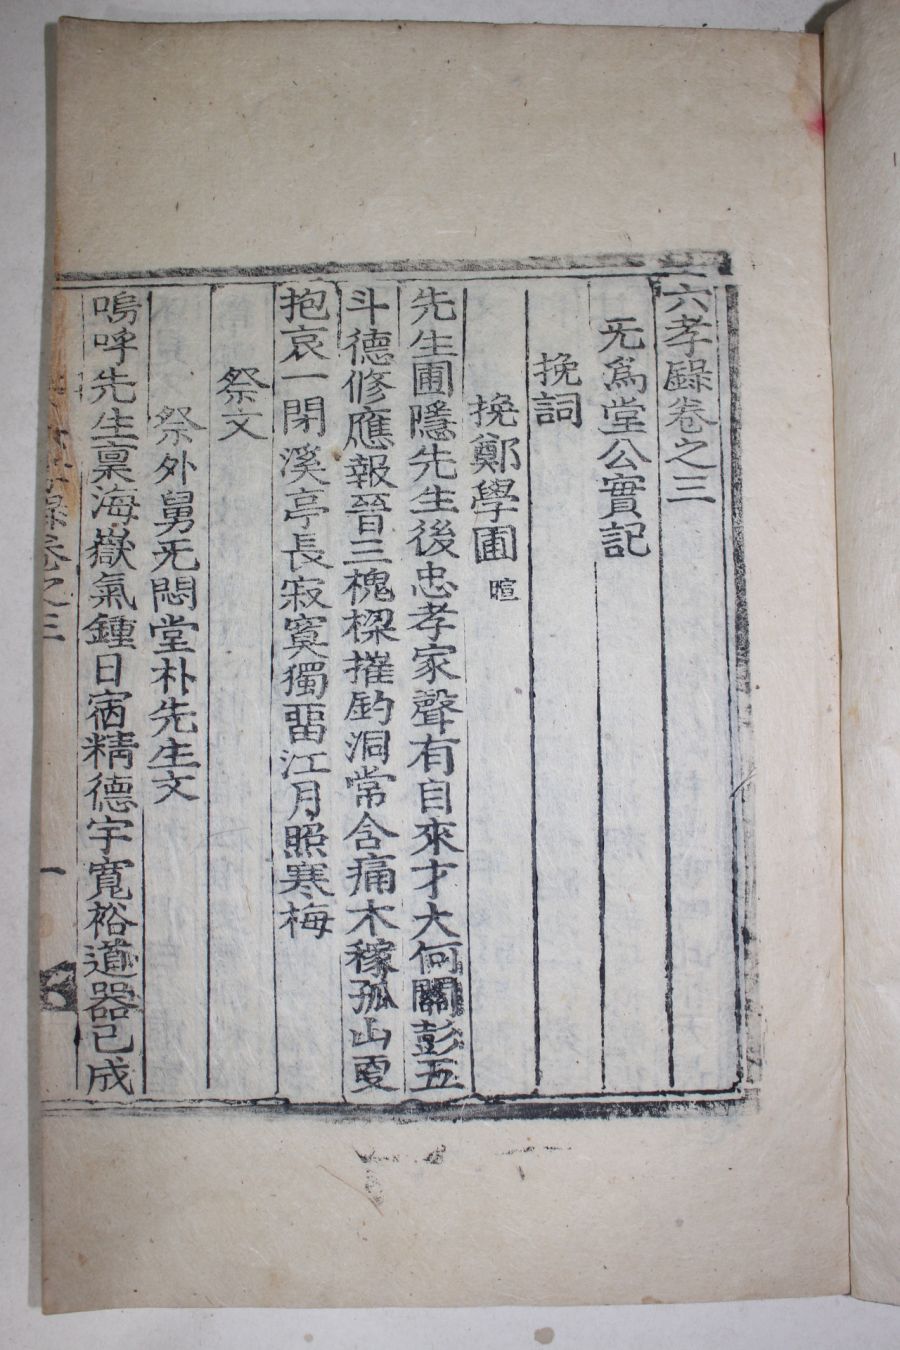 六孝錄卷之三
旡爲堂公實記
挽詞
挽鄭學圃 暄
先生圃隱先生後忠孝家聲有自來才大何關彭五
斗德修應報晉三槐樑摧釣洞常含痛木稼孤山更
抱哀一閉溪亭長寂寞獨畱江月照寒梅
祭文
祭外舅旡悶堂朴先生文
嗚呼先生稟海嶽氣鍾日宿精德宇寬裕道器已成
六孝錄卷之三
一